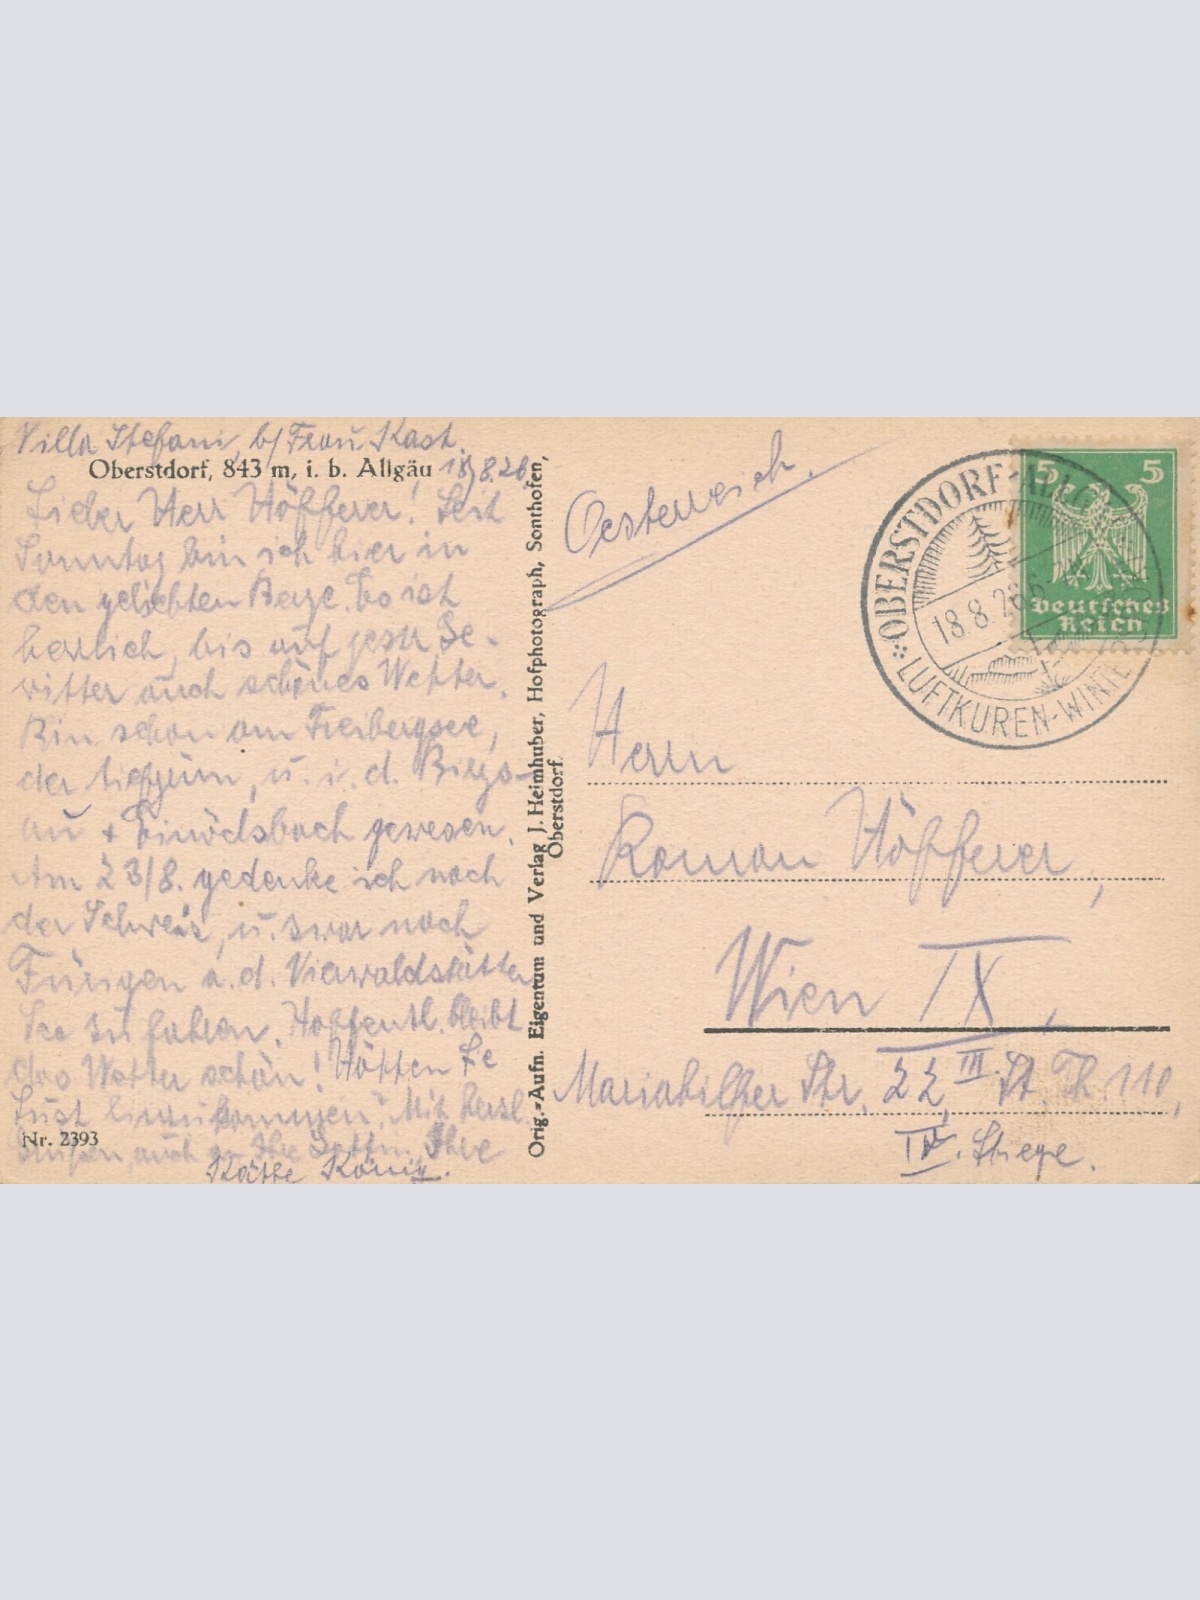 Villa Stefani, b/ Frau Kast.
Oberstdorf, 843 m, i. b. Allgäu
18/8.26
Lieber Herr Höfferer! Seit
Sonntag bin ich hier in
den geliebten Berge. Es ist
herrlich, bis auf gestr Ge-
witter auch schönes Wetter.
Bin schon am Freibergsee,
der tiefgrün, u. i. d. Birgs-
au + Einödsbach gewesen.
Am 23/8. gedenke ich nach
der Schweiz, u. zwar nach
a. d. Vierwaldstätter
See zu fahren. Hoffentl. bleibt
das Wetter schön! Hätten Se
Lust hinzukommen? Mit herzl.
Grüßen, auch an Ihre Gattin, Ihre
Käthe König.
Nr. 2393
Orig.-Aufn. Eigentum und Verlag J. Heimhuber, Hofphotograph, Sonthofen,
Oberstdorf.
Oesterreich.
OBERSTDORF-ALLG
18.8.26
LUFTKUREN-WINTE
5 5
Deutsches
Reich
Herrn
Roman Höfferer,
Wien IX,
Mariahilfer Str. 22, III. St. Th 110,
IV. Stiege.